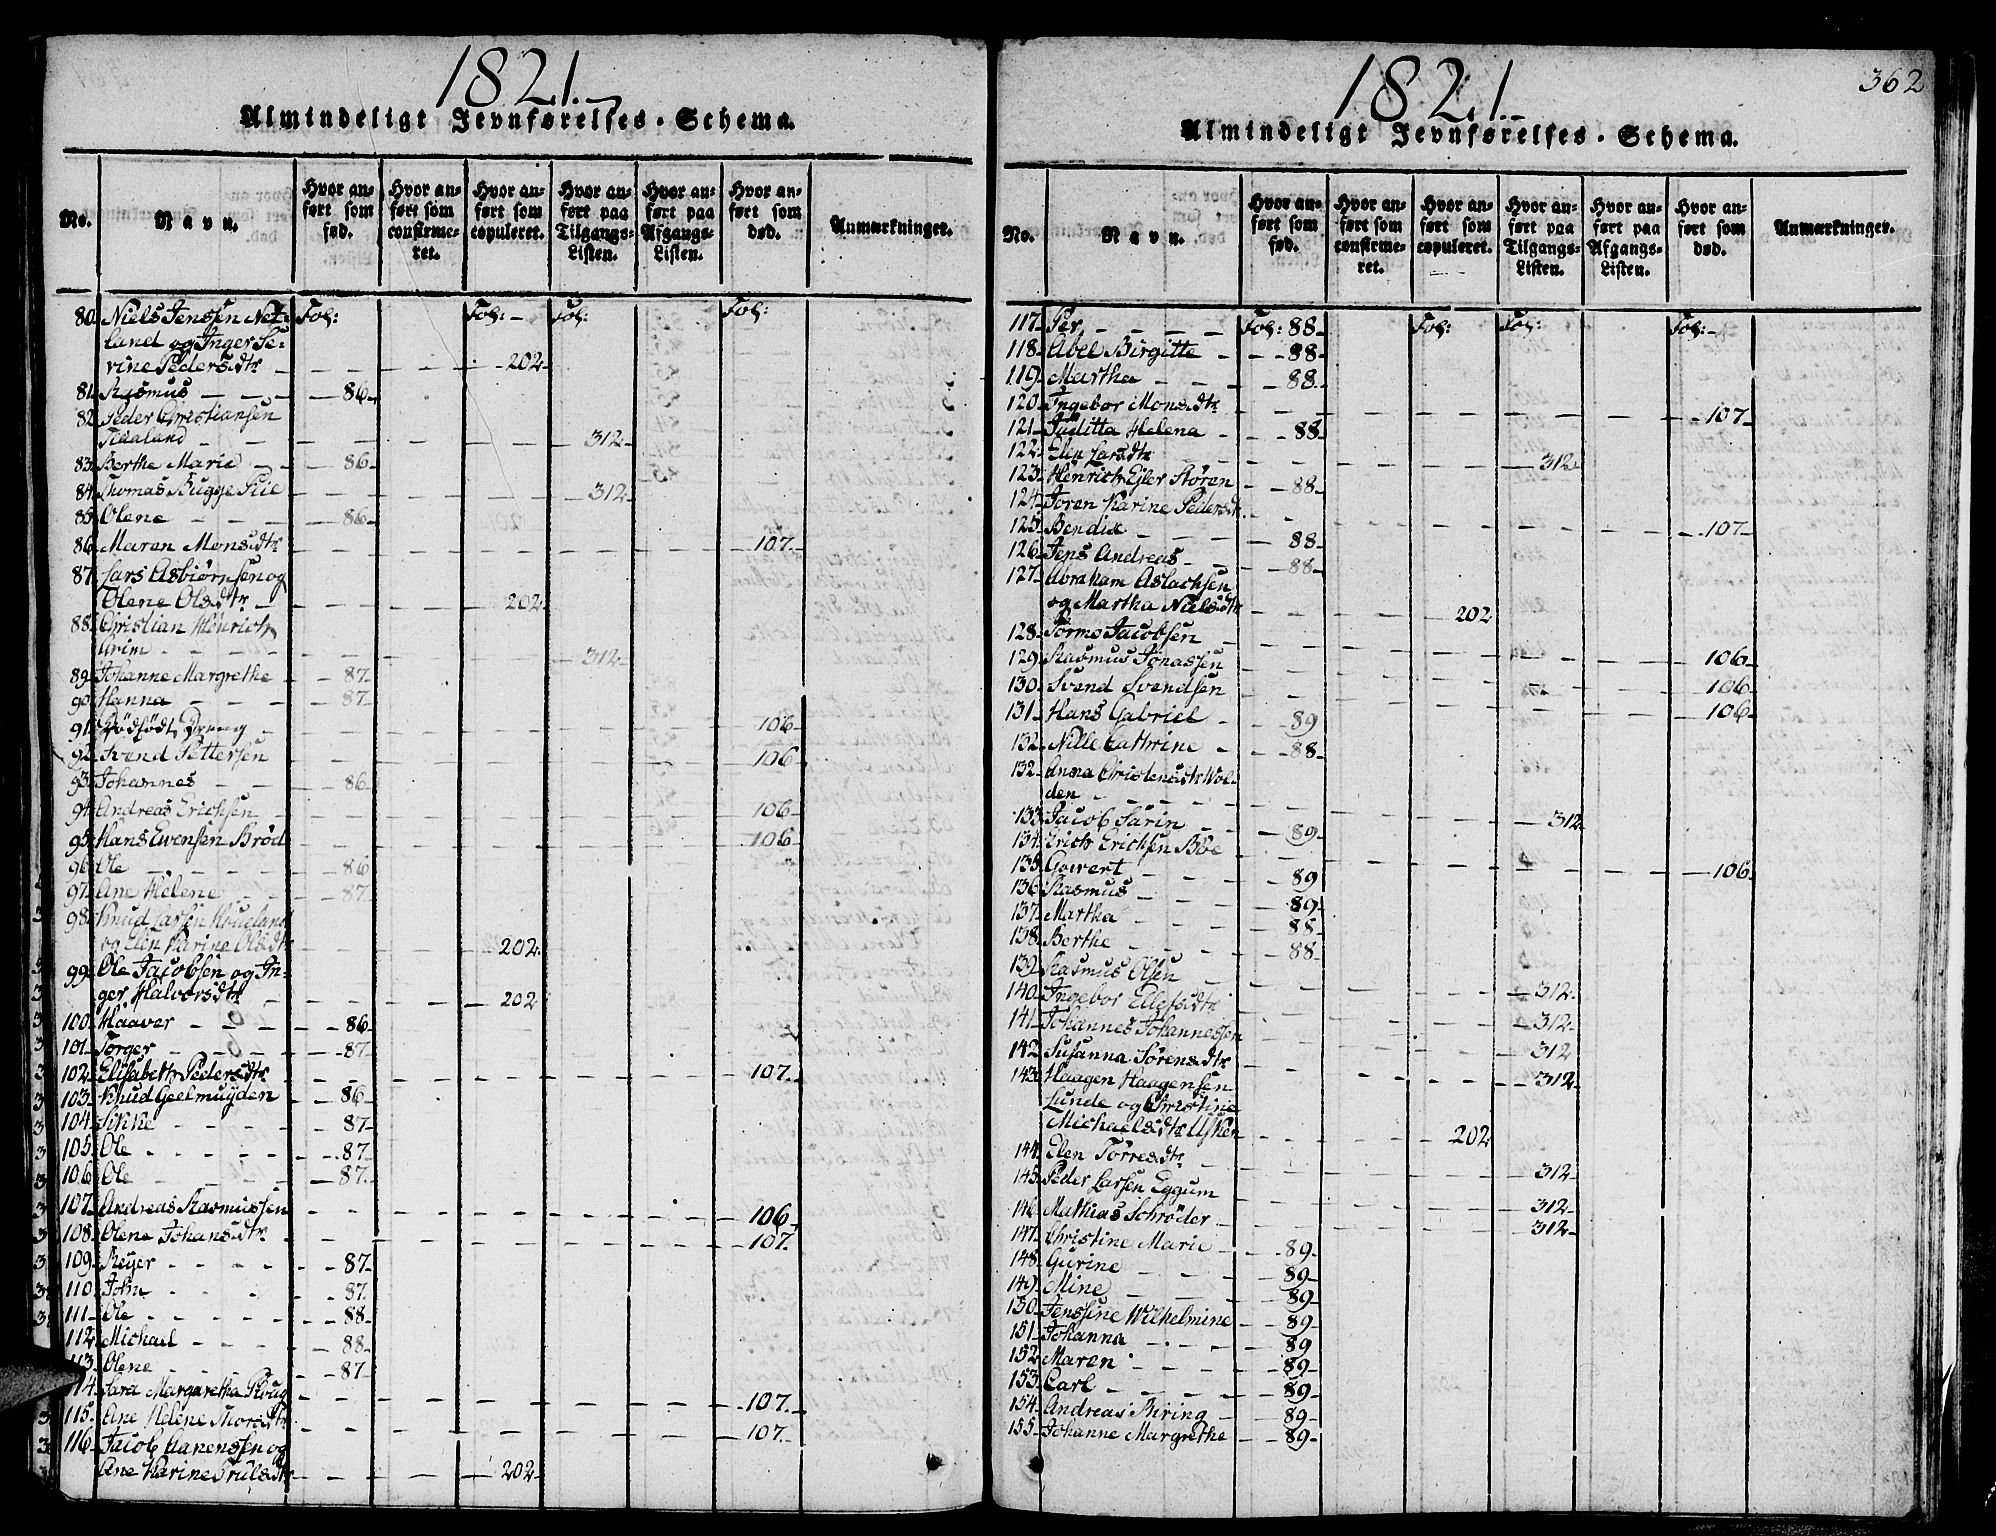 1821.
Almindeligt Jevnførelses-Schema.
No.
Navn.
Hvor anført som fød.
Hvor anført som confirmeret.
Hvor anført som copuleret.
Hvor anført paa Tilgangs-Listen.
Hvor anført paa Afgangs-Listen.
Hvor anført som død.
Anmærkninger.
80. Niels Jenssen Net- Fol: Fol: - Fol: Fol:
land og Inger Se-
vine Pedersdtr - - - - - 202.
81. Rasmus - - - 86.
82. Peder Christiansen
Adaland - - - - - 312.
83. Berthe Marie - - 86.
84. Thomas Bugge - - - - 312.
85. Olene - - - - 86.
86. Maren Monsdtr - - - - - - 107.
87. Lars Asbiørnsen og
Olene Olsdtr - - - - - 202.
88. Christian Henrich
Grim - - - - - - 312.
89. Johanne Margrethe - 87.
90. Hanna - - - 87.
91. Dødfødt Dreng - - - - - 106.
92. Svend Pettersen - - - - - 106.
93. Johannes - - - 86.
94. Andreas Erichsen - - - - - 106.
95. Hans Evensen Brød - - - - - 106.
96. Ole - - - - 86
97. Ane Helene - - 87.
98. Knud Larsen Houeland
og Elen Karine Olsdtr - - - - 202.
99. Ole Jacobsen og In-
ger Halvorsdtr - - - - - 202.
100. Haaver - - - - 86.
101. Torger - - - - 87.
102. Elisabeth Pedersdtr - - - - - - 107.
103. Knud Geelmuyden - - 86.
104. Sikke - - - - 87.
105. Ole - - - - - 87.
106. Ole - - - - 87.
107. Andreas Rasmussen - - - - - - 106.
108. Olene Johansdtr. - - - - - - 107.
109. Reyer - - - - 87.
110. John - - - - 87.
111. Ole - - - - 88.
112. Michael - - - 88.
113. Olene - - - - 87.
114. Sara Margaretha Ploug - - - - - - 107.
115. Ane Helene Thoresdtr - - - - - - 107.
116. Jacob Aanenssen og
Ane Karine Trulsdtr - - - - 202.
1821.
362
Almindeligt Jevnførelses-Schema.
No.
Navn.
Hvor anført som fød.
Hvor anført som confirmeret.
Hvor anført som copuleret.
Hvor anført paa Tilgangs-Listen.
Hvor anført paa Afgangs-Listen.
Hvor anført som død.
Anmærkninger.
117. Per, - - - - Fol: 88. Fol: Fol: Fol:
118. Abel Birgitte - - 88.
119. Martha - - - - 88.
120. Ingebor Monsdtr - - - - - - 107.
121. Juditta Helena - - 88.
122. Elen Larsdtr - - - - - 312.
123. Henrich Ejler Støren - 88.
124. Joren Karine Pedersdtr. - - - - - - 107.
125. Bendix - - - - 88.
126. Jens Andreas - - 88.
127. Abraham Aslachsen
og Martha Nielsdtr - - - 202
128. Tormo Jacobsen - - - - - - 106.
129. Rasmus Jonassen - - - - - - 106.
130. Svend Svendsen - - - - - - 106.
131. Hans Gabriel - - 89
132. Nille Cathrine - - 88.
132. Anna Christensdtr Wol-
den - - - - - - 312.
133. Jacob Sarin - - 89.
134. Erich Erichsen Böe - - - - - - 106.
135. Gowert - - - - 89
136. Rasmus - - - 89.
137. Martha - - - 88.
138. Berthe - - - 88.
139. Rasmus Olsen - - - - 312.
140. Ingebor Ellefsdtr - - - - 312.
141. Johannes Johannessen - - - - 312
142. Susanna Sørensdtr - - - - 312.
143. Haagen Haagensen
Lunde og Christine
Michaelsdtr Usken - - - 202
144. Elen Torresdtr - - - - 312.
145. Peder Larsen Eggum - - - - 312.
146. Mathias Schrøder - - - - 312.
147. Christine Marie - - 89.
148. Gurine - - - 89.
149. Mine - - - - 89.
150. Jenssine Wilhelmine - 89.
151. Johanna - - - 89
152. Maren - - - - 89.
153. Carl - - - - 89.
154. Andreas Biring - - 89.
155. Johanne Margrethe - - 89.